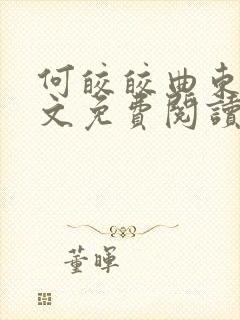 何皎皎曲東
文免費閱讀
董暉